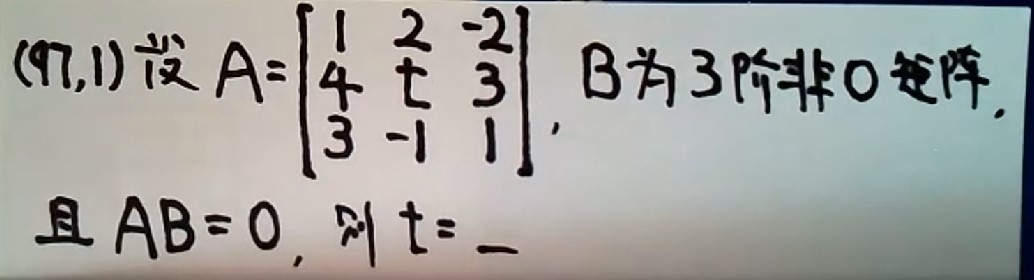 (97,1) 设 A=[1 2 -2; 4 t 3; 3 -1 1], B为3阶非0矩阵.
且 AB=0, 则 t=_